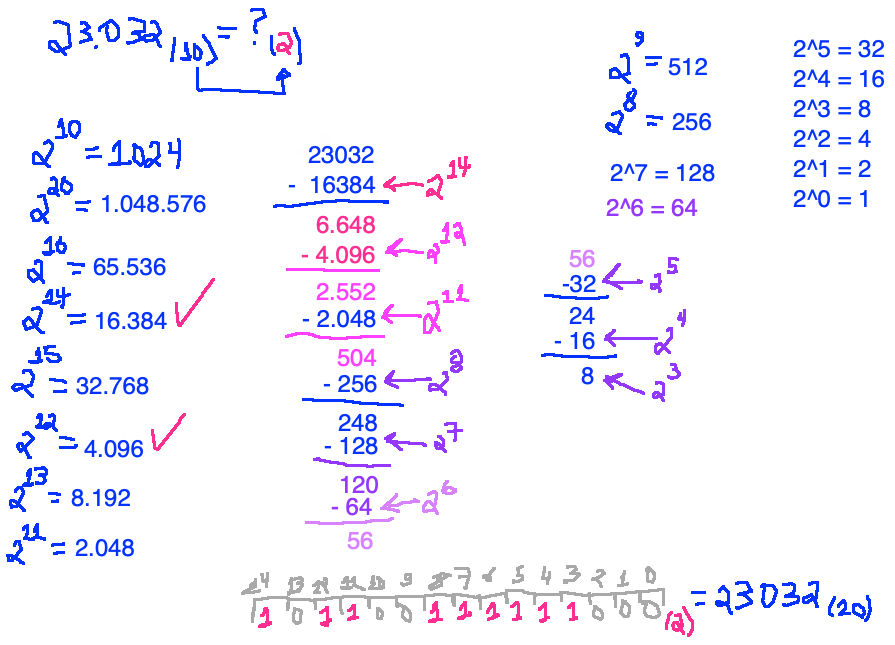 23.032(10) = ? (2)
2^10 = 1024
2^20 = 1.048.576
2^16 = 65.536
2^14 = 16.384 ✓
2^15 = 32.768
2^12 = 4.096 ✓
2^13 = 8.192
2^11 = 2.048
23032
- 16384 ← 2^14
6.648
- 4.096 ← 2^12
2.552
- 2.048 ← 2^11
504
- 256 ← 2^8
248
- 128 ← 2^7
120
- 64 ← 2^6
56
2^9 = 512
2^8 = 256
2^7 = 128
2^6 = 64
56
-32 ← 2^5
24
- 16 ← 2^4
8 ← 2^3
2^5 = 32
2^4 = 16
2^3 = 8
2^2 = 4
2^1 = 2
2^0 = 1
14 13 12 11 10 9 8 7 6 5 4 3 2 1 0
1 0 1 1 0 0 1 1 1 1 1 1 0 0 0 (2) = 23032 (10)